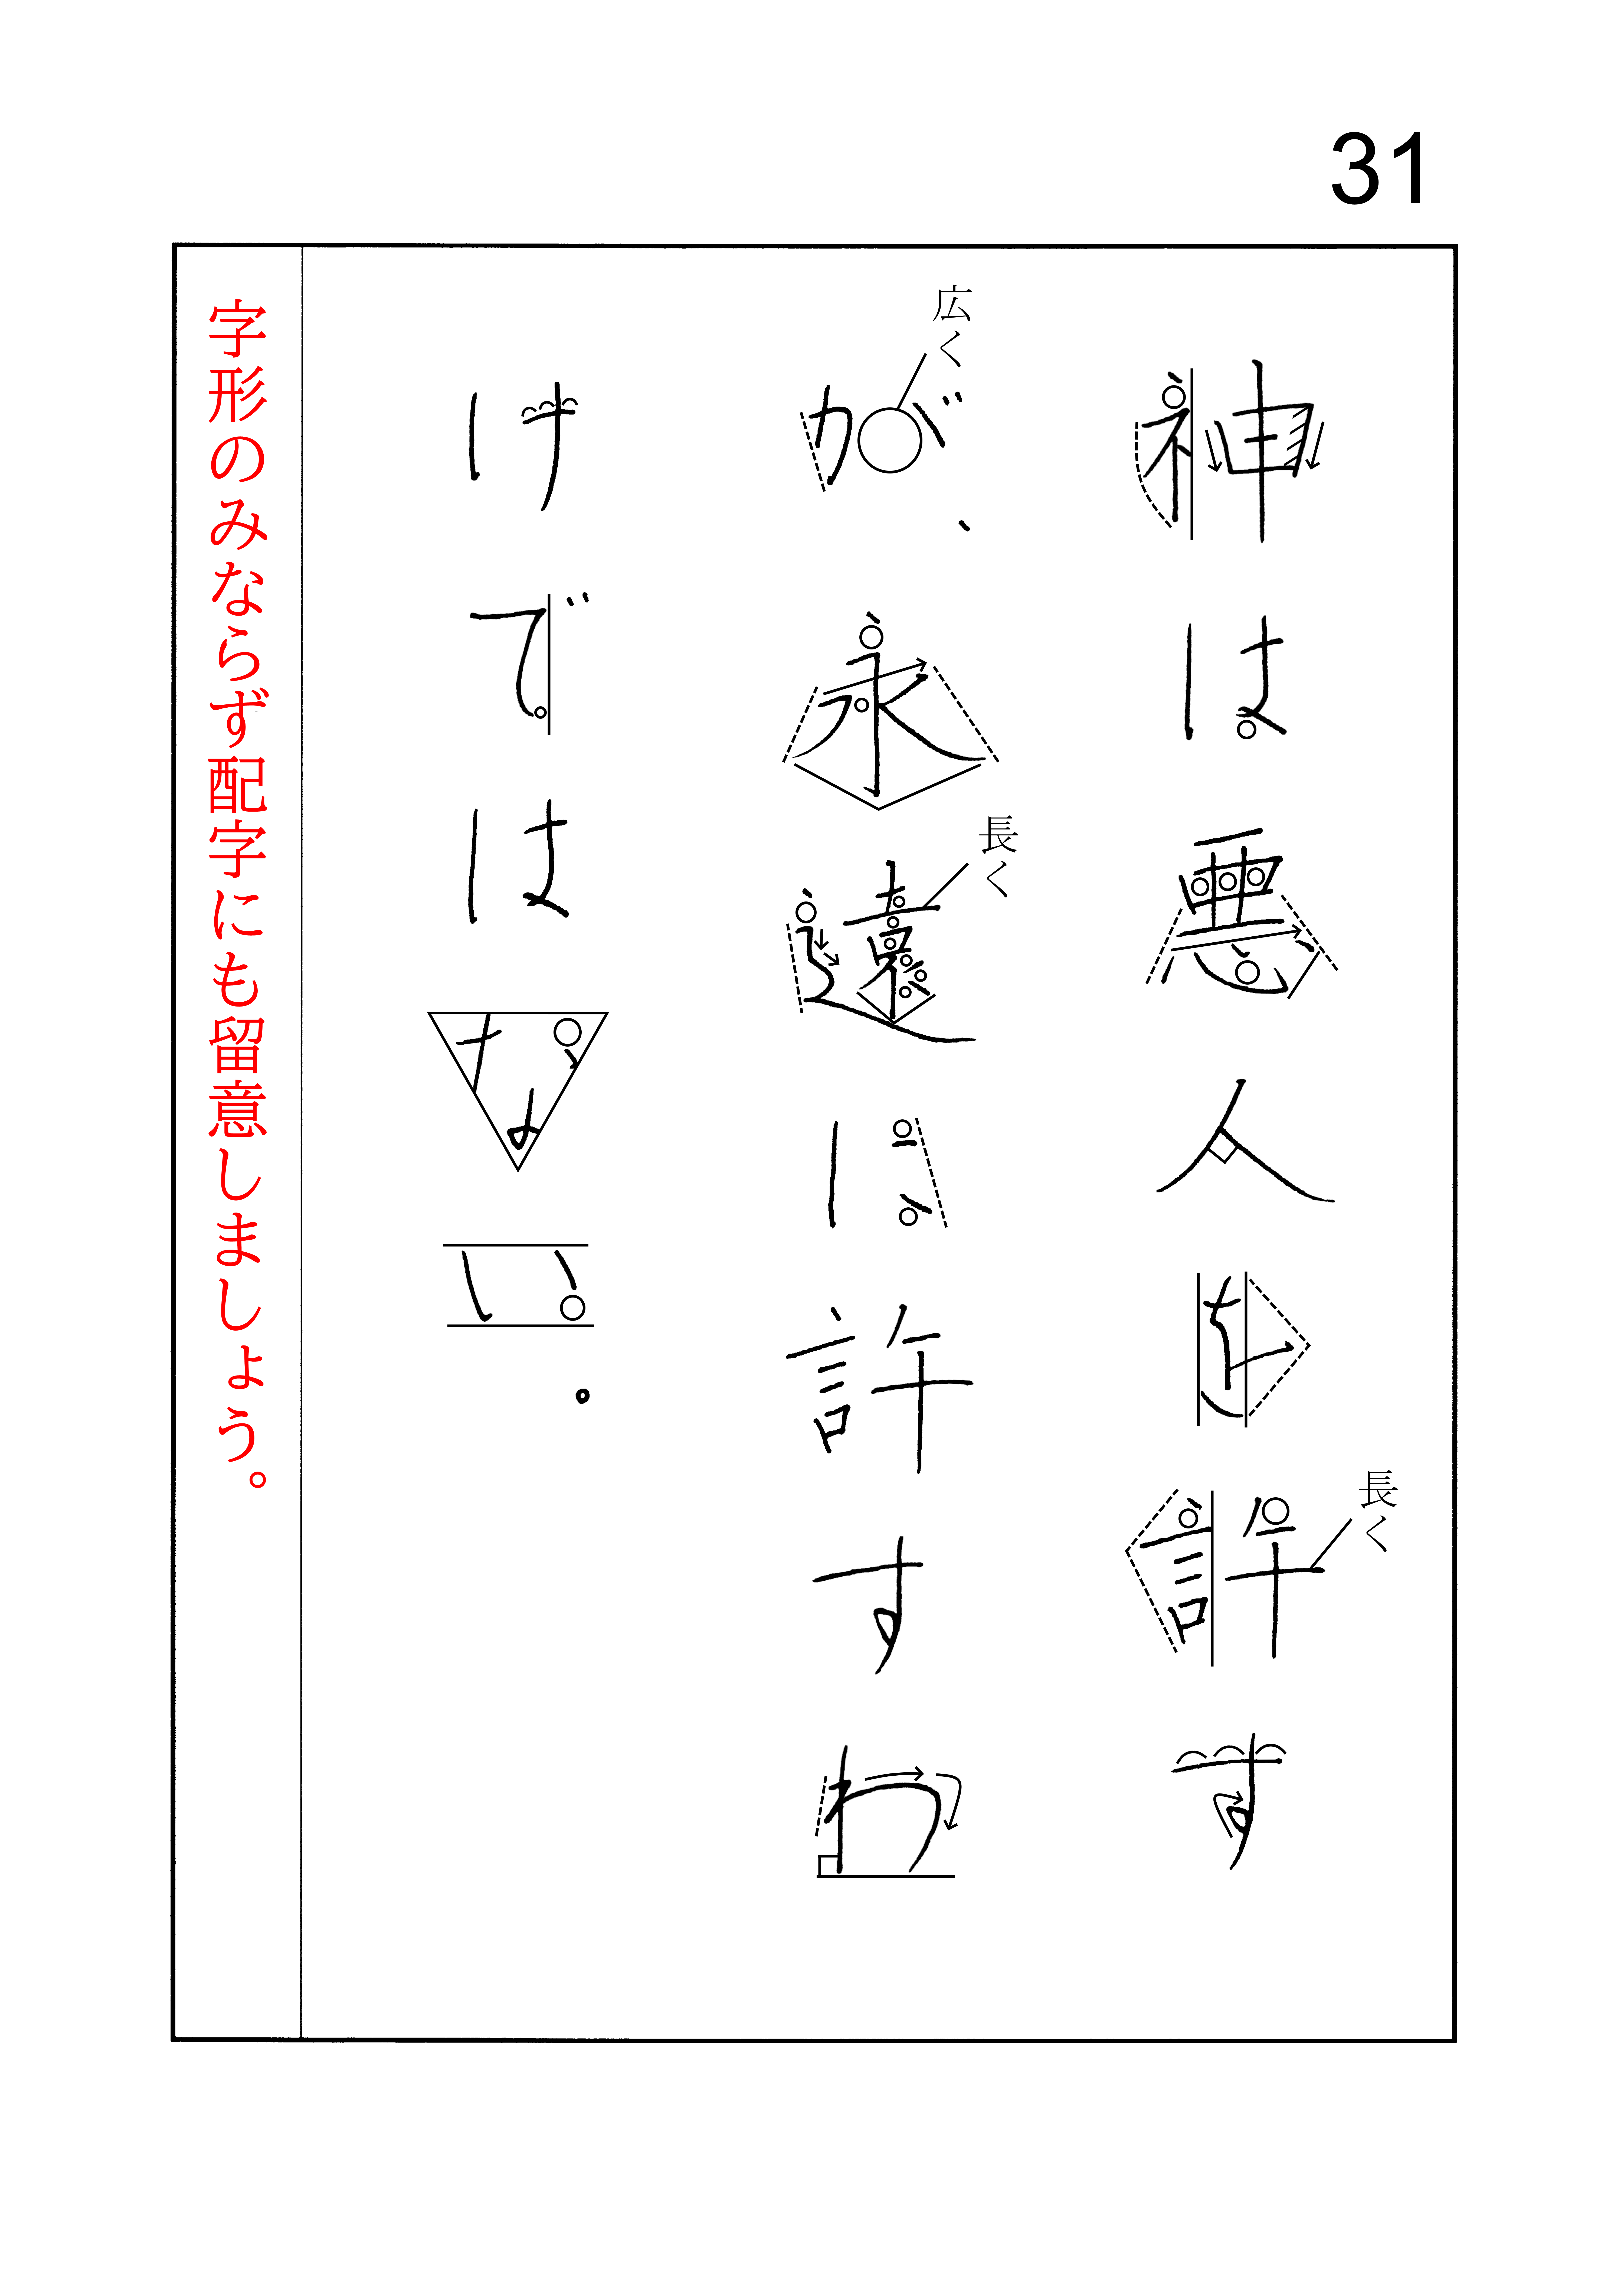 31
長く
神は悪人を許す
広く
長く
が、永遠に許すわ
けではない。
字形のみならず配字にも留意しましょう。